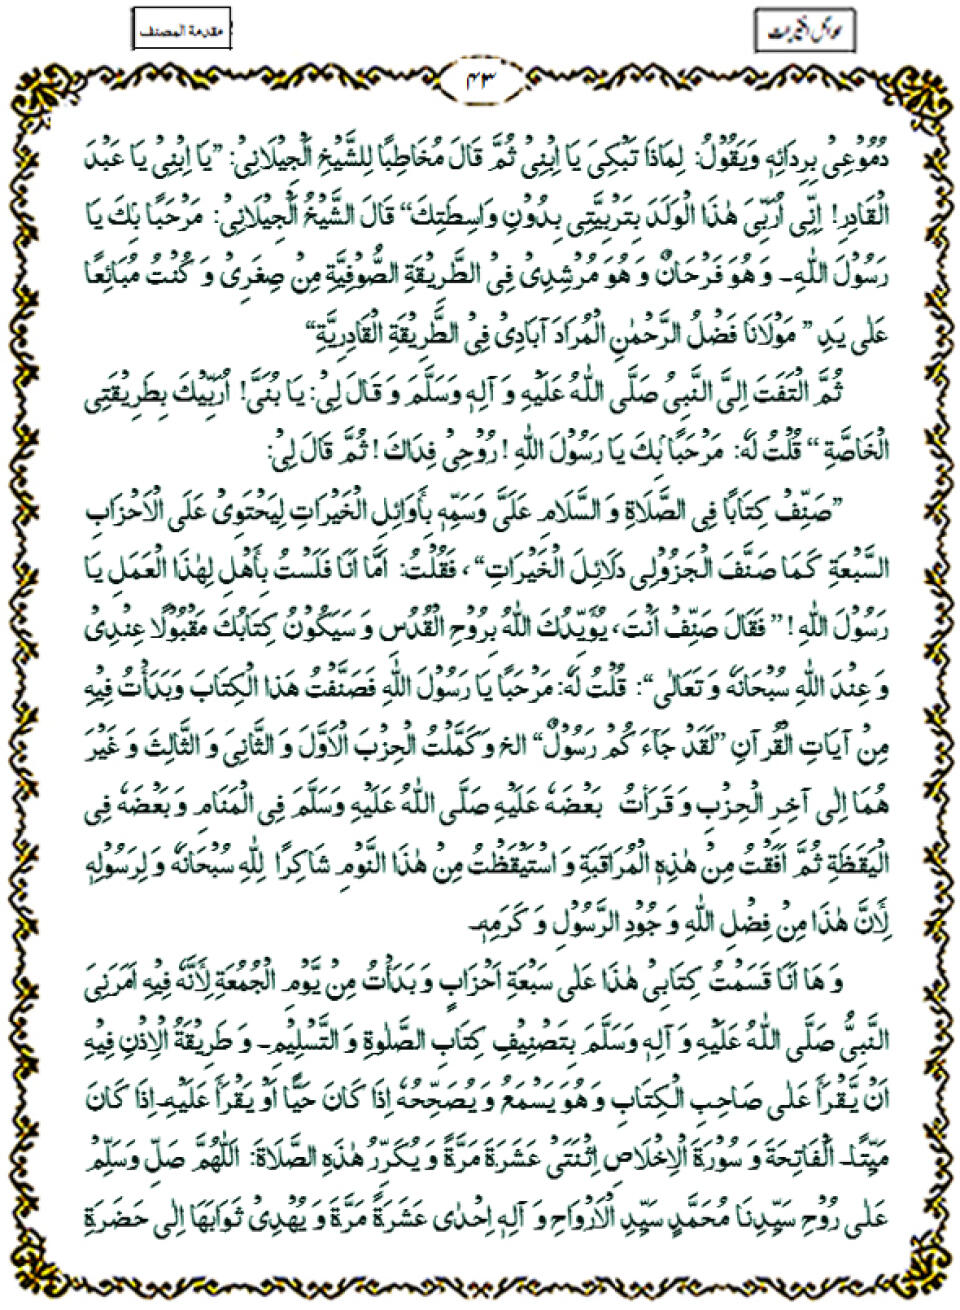 مقدمة المصنف
۴۳
دُمُوْعِيْ بِرِدَائِهٖ وَيَقُوْلُ: لِمَاذَا تَبْكِيْ يَا اِبْنِيْ ثُمَّ قَالَ مُخَاطِبًا لِلشَّيْخِ الْجِيْلَانِيْ: ”يَا اِبْنِيْ يَا عَبْدَ
الْقَادِرِ! اِنِّي اُرَبِّيْ هٰذَا الْوَلَدَ بِتَرْبِيَّتِيْ بِدُوْنِ وَاسِطَتِكَ“ قَالَ الشَّيْخُ الْجِيْلَانِيْ: مَرْحَبًا بِكَ يَا
رَسُوْلَ اللّٰهِ۔ وَهُوَ فَرْحَانٌ وَهُوَ مُرْشِدِيْ فِي الطَّرِيْقَةِ الصُّوْفِيَّةِ مِنْ صِغَرِيْ وَ كُنْتُ مُبَائِعًا
عَلٰى يَدِ ”مَوْلَانَا فَضْلُ الرَّحْمٰنِ الْمُرَادَ آبَادِيْ فِي الطَّرِيْقَةِ الْقَادِرِيَّةِ“
ثُمَّ الْتَفَتَ اِلَيَّ النَّبِيُّ صَلَّى اللّٰهُ عَلَيْهِ وَ آلِهٖ وَسَلَّمَ وَ قَالَ لِيْ: يَا بُنَيَّ! اُرَبِّيْكَ بِطَرِيْقَتِيْ
الْخَاصَّةِ“ قُلْتُ لَهٗ: مَرْحَبًا بِكَ يَا رَسُوْلَ اللّٰهِ! رُوْحِيْ فِدَاكَ! ثُمَّ قَالَ لِيْ:
”صَنِّفْ كِتَابًا فِي الصَّلَاةِ وَ السَّلَامِ عَلَيَّ وَسَمِّهٖ بِأَوَائِلِ الْخَيْرَاتِ لِيَحْتَوِيْ عَلَى الْاَحْزَابِ
السَّبْعَةِ كَمَا صَنَّفَ الْجَزُوْلِي دَلَائِلَ الْخَيْرَاتِ“، فَقُلْتُ: اَمَّا اَنَا فَلَسْتُ بِأَهْلٍ لِهٰذَا الْعَمَلِ يَا
رَسُوْلَ اللّٰهِ! ”فَقَالَ صَنِّفْ اَنْتَ، يُؤَيِّدُكَ اللّٰهُ بِرُوْحِ الْقُدُسِ وَ سَيَكُوْنُ كِتَابُكَ مَقْبُوْلًا عِنْدِيْ
وَ عِنْدَ اللّٰهِ سُبْحَانَهٗ وَ تَعَالٰى“: قُلْتُ لَهٗ: مَرْحَبًا يَا رَسُوْلَ اللّٰهِ فَصَنَّفْتُ هَذَا الْكِتَابَ وَبَدَأْتُ فِيْهِ
مِنْ آيَاتِ الْقُرْآنِ ”لَقَدْ جَآءَ كُمْ رَسُوْلٌ“ الخ وَ كَمَّلْتُ الْحِزْبَ الْاَوَّلَ وَ الثَّانِيَ وَ الثَّالِثَ وَ غَيْرَ
هُمَا اِلٰى آخِرِ الْحِزْبِ وَ قَرَاْتُ بَعْضَهٗ عَلَيْهِ صَلَّى اللّٰهُ عَلَيْهِ وَسَلَّمَ فِي الْمَنَامِ وَ بَعْضَهٗ فِي
الْيَقَظَةِ ثُمَّ اَفَقْتُ مِنْ هٰذِهِ الْمُرَاقَبَةِ وَ اسْتَيْقَظْتُ مِنْ هٰذَا النَّوْمِ شَاكِرًا لِلّٰهِ سُبْحَانَهٗ وَ لِرَسُوْلِهٖ
لِأَنَّ هٰذَا مِنْ فَضْلِ اللّٰهِ وَ جُوْدِ الرَّسُوْلِ وَ كَرَمِهٖ۔
وَ هَا اَنَا قَسَمْتُ كِتَابِيْ هٰذَا عَلٰى سَبْعَةِ اَحْزَابٍ وَ بَدَأْتُ مِنْ يَّوْمِ الْجُمُعَةِ لِأَنَّهٗ فِيْهِ اَمَرَنِيَ
النَّبِيُّ صَلَّى اللّٰهُ عَلَيْهِ وَ آلِهٖ وَسَلَّمَ بِتَصْنِيْفِ كِتَابِ الصَّلٰوةِ وَ التَّسْلِيْمِ۔ وَ طَرِيْقَةُ الْاِذْنِ فِيْهِ
اَنْ يَّقْرَأَ عَلٰى صَاحِبِ الْكِتَابِ وَ هُوَ يَسْمَعُ وَ يُصَحِّحُهٗ اِذَا كَانَ حَيًّا اَوْ يَقْرَأُ عَلَيْهِ۔ اِذَا كَانَ
مَيِّتًا۔ الْفَاتِحَةَ وَ سُوْرَةَ الْاِخْلَاصِ اِثْنَتَيْ عَشَرَةَ مَرَّةً وَ يُكَرِّرُ هٰذِهِ الصَّلَاةَ: اَللّٰهُمَّ صَلِّ وَسَلِّمْ
عَلٰى رُوْحِ سَيِّدِنَا مُحَمَّدٍ سَيِّدِ الْاَرْوَاحِ وَ آلِهٖ اِحْدٰى عَشَرَةَ مَرَّةً وَ يُهْدِيْ ثَوَابَهَا اِلٰى حَضْرَةِ